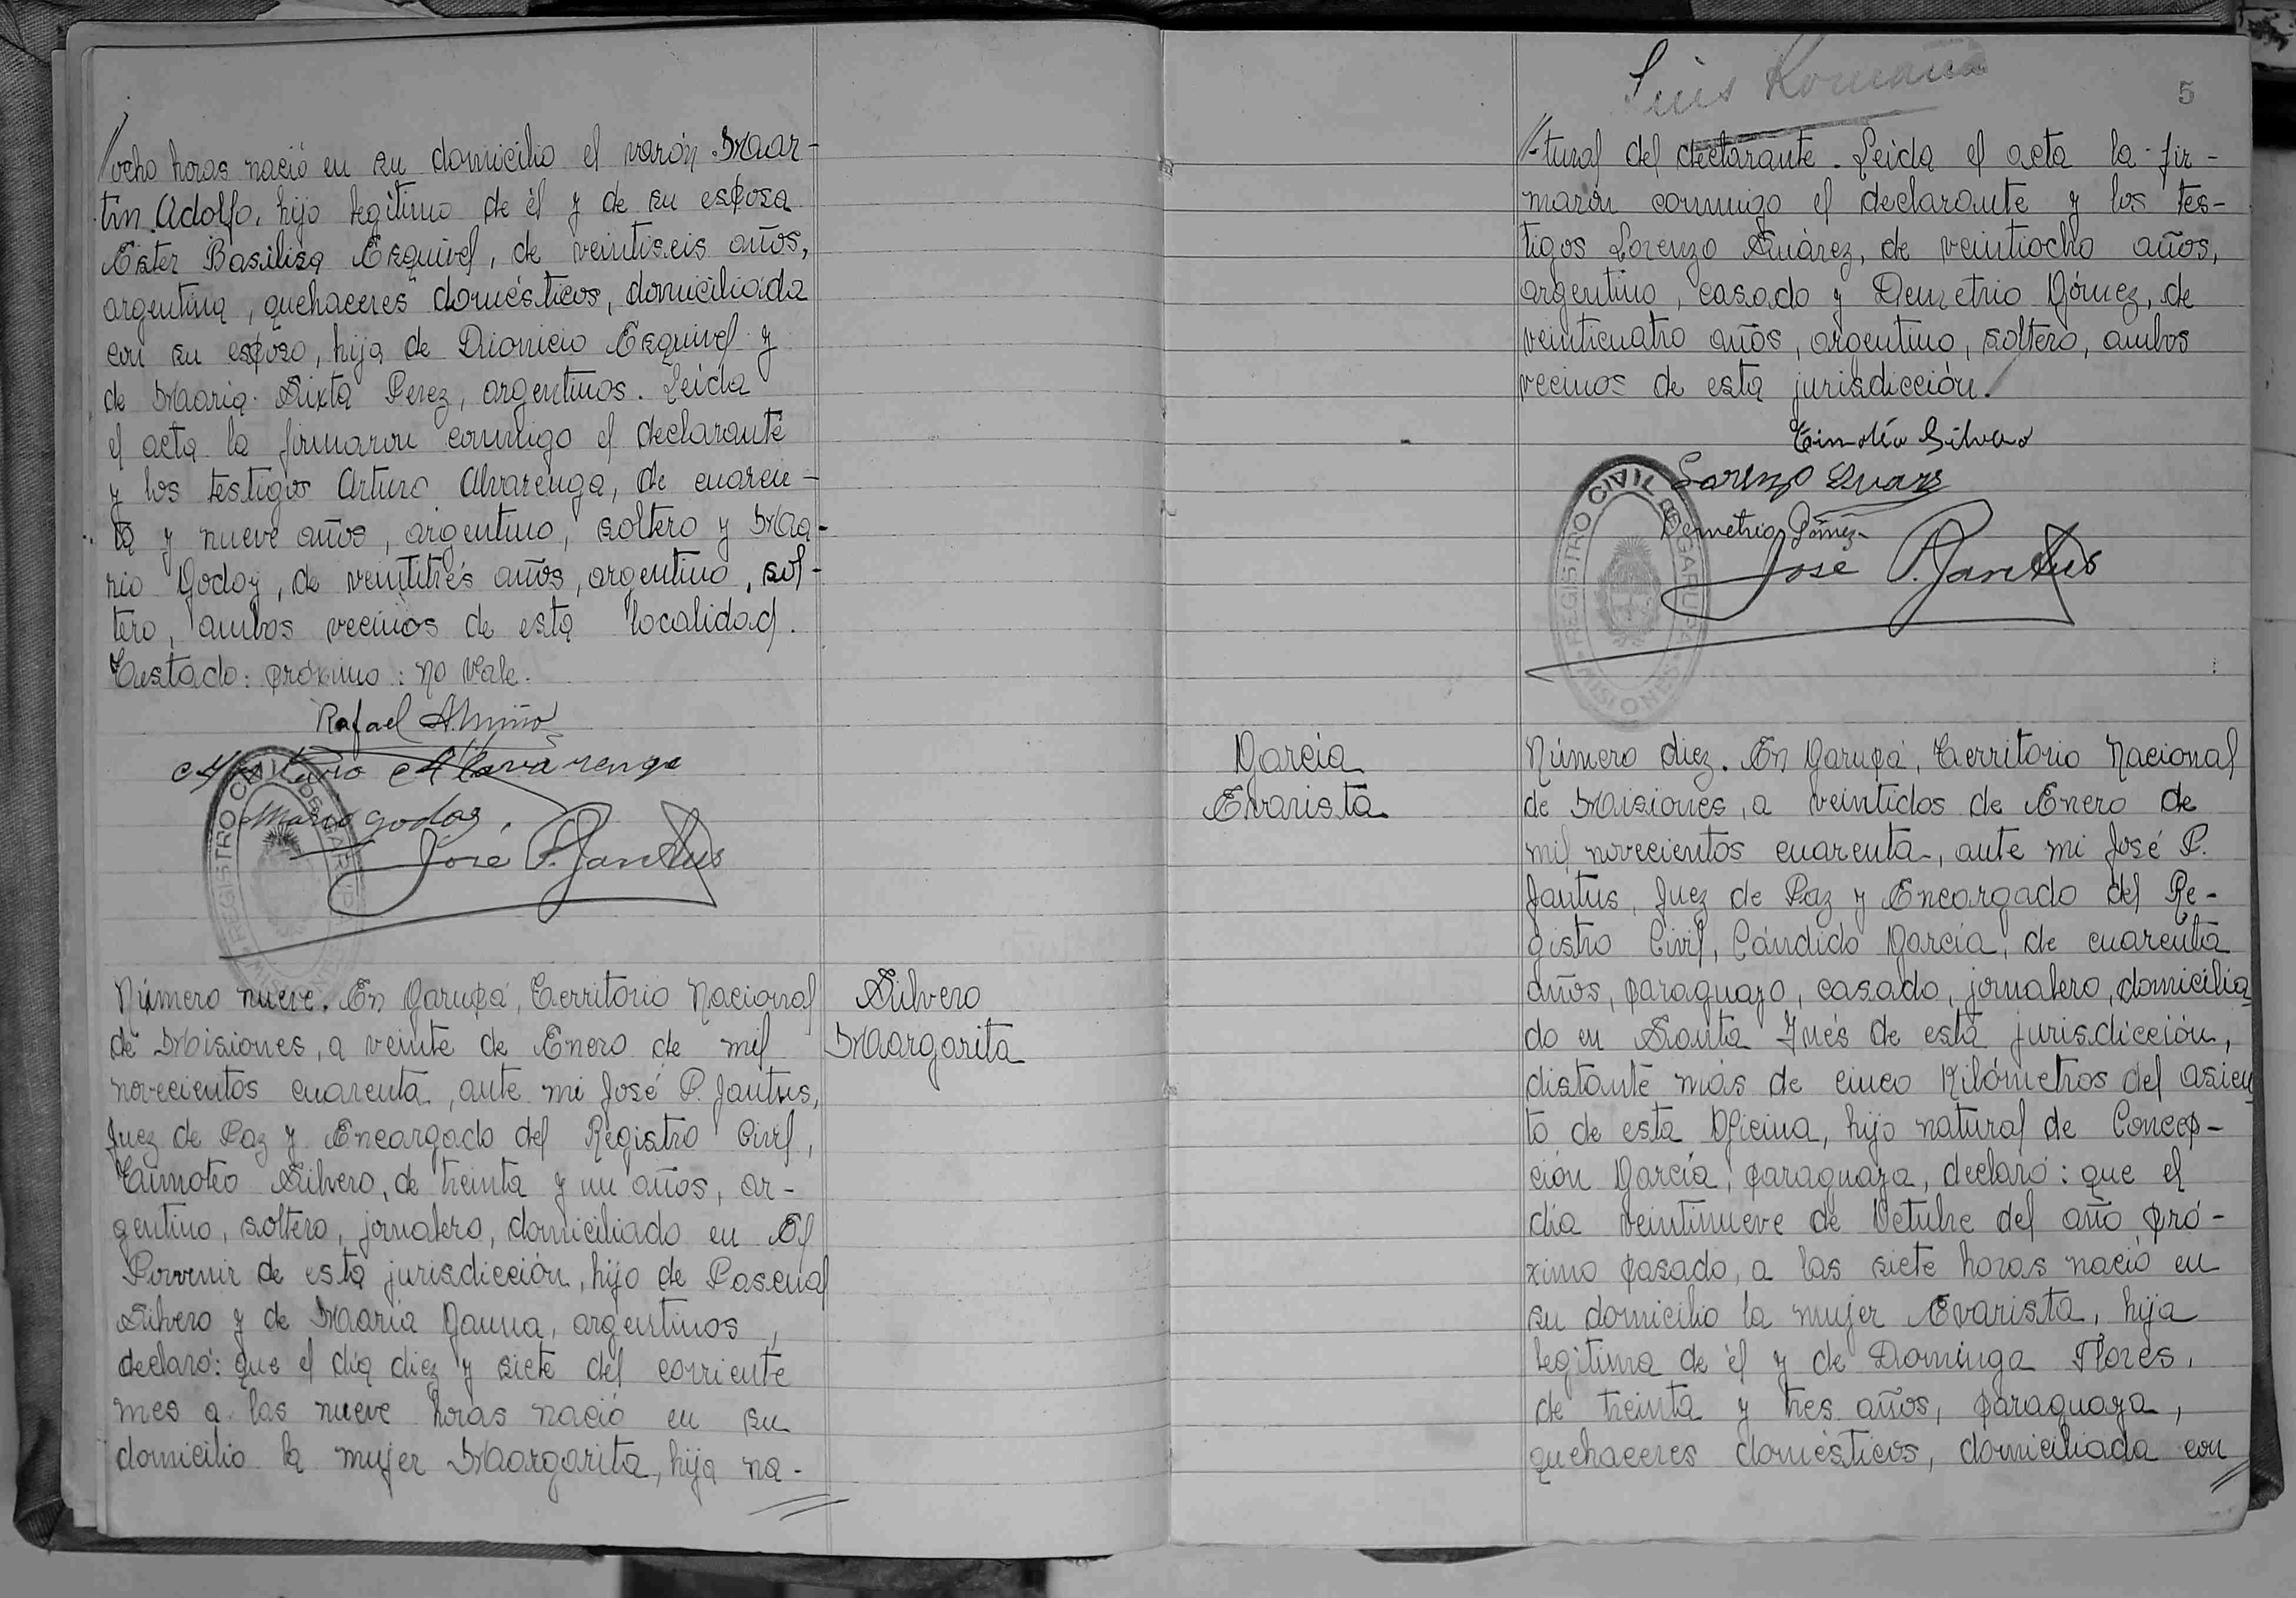 //ocho horas nació en su domicilio el varón Mar-
tin Adolfo, hijo legítimo de él y de su esposa
Ester Basilisa Esquivel, de veintiseis años,
argentina, quehaceres domésticos, domiciliada
con su esposo, hija de Dionicio Esquivel y
de Maria Sixta Perez, argentinos. Leida
el acta la firmaron conmigo el declarante
y los testigos Arturo Alvarenga, de cuaren-
ta y nueve años, argentino, soltero y Ma-
rio Godoy, de veintitrés años, argentino, sol-
tero, ambos vecinos de esta localidad.
Testado: próximo: no vale.
Rafael Almiño
Arturo Alvarenga
Mario godoy
José P. Jantus
REGISTRO CIVIL DE GARUPA
Número nueve. En Garupá, Territorio Nacional
de Misiones, a veinte de Enero de mil
novecientos cuarenta, ante mi José P. Jantus,
Juez de Paz y Encargado del Registro Civil,
Timoteo Silvero, de treinta y un años, ar-
gentino, soltero, jornalero, domiciliado en El
Porvenir de esta jurisdicción, hijo de Pascual
Silvero y de Maria Gauna, argentinos,
declaró: que el día diez y siete del corriente
mes a las nueve horas nació en su
domicilio la mujer Margarita, hija na-
Silvero
Margarita
Luis Romaña
5
//-tural del declarante. Leida el acta la fir-
maron conmigo el declarante y los tes-
tigos Lorenzo Suárez, de veintiocho años,
argentino, casado y Demetrio Gómez, de
veinticuatro años, argentino, soltero, ambos
vecinos de esta jurisdicción.
Timotio Silvero
Lorenzo Suarez
Demetrio Gómez
José P. Jantus
REGISTRO CIVIL DE GARUPA · MISIONES
García
Evarista
Número diez. En Garupá, Territorio Nacional
de Misiones, a veintidos de Enero de
mil novecientos cuarenta, ante mi José P.
Jantus, Juez de Paz y Encargado del Re-
gistro Civil, Cándido García, de cuarenta
años, paraguayo, casado, jornalero, domicilia
do en Santa Inés de esta jurisdicción,
distante más de cinco Kilómetros del asien
to de esta Oficina, hijo natural de Concep-
ción García, paraguaya, declaró: que el
día veintinueve de Octubre del año pró-
ximo pasado, a las siete horas nació en
su domicilio la mujer Evarista, hija
legítima de él y de Dominga Flores,
de treinta y tres años, paraguaya,
quehaceres domésticos, domiciliada con